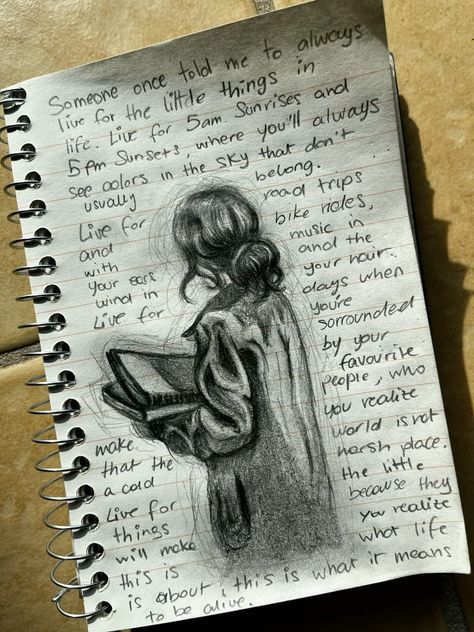 Someone once told me to always
live for the little things in
life. Live for 5am Sunrises and
5pm Sunsets, where you'll always
see colors in the sky that don't
usually belong.
Live for road trips
and bike rides,
with music in
your ears and the
wind in your hair.
Live for days when
you're
sorrounded
by your
favourite
people, who
make you realize
that the world is not
a cold harsh place.
Live for the little
things because they
will make you realize
this is what life
is about, this is what it means
to be alive.